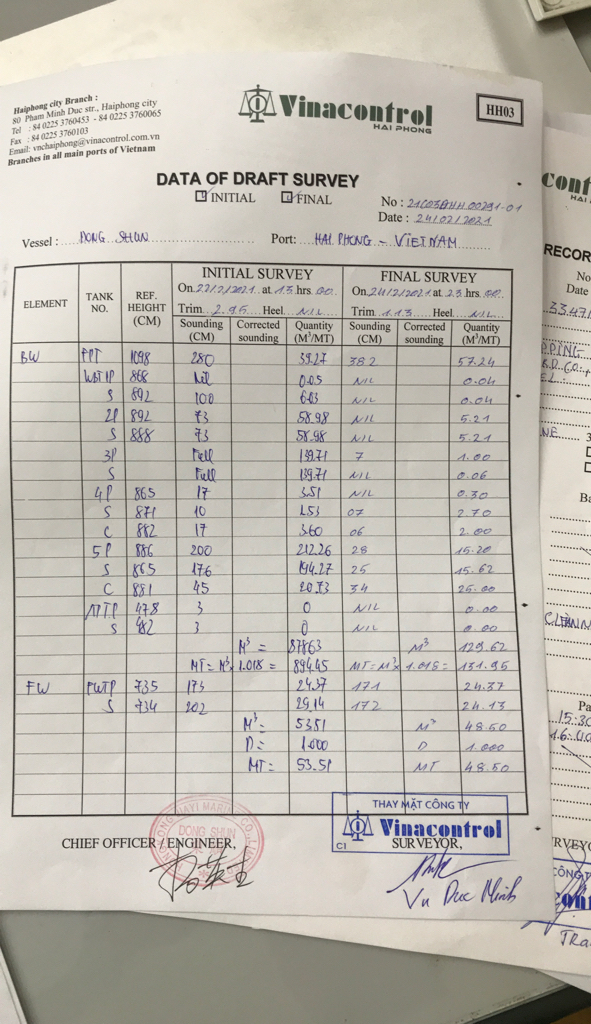 Haiphong city Branch :
80 Pham Minh Duc str., Haiphong city
Tel : 84 0225 3760453 - 84 0225 3760065
Fax : 84 0225 3760103
Email: vnchaiphong@vinacontrol.com.vn
Branches in all main ports of Vietnam
Vinacontrol
HAI PHONG
HH03
DATA OF DRAFT SURVEY
INITIAL FINAL
No : 21G03BHH00291-01
Date : 24/02/2021
Vessel : DONG SHUN Port: HAI PHONG - VIETNAM
ELEMENT TANK NO. REF. HEIGHT (CM) INITIAL SURVEY FINAL SURVEY
On 22/2/2021 at 13 hrs 00 On 24/2/2021 at 23 hrs
Trim 2.95 Heel NIL Trim 1.13 Heel NIL
Sounding (CM) Corrected sounding Quantity (M³/MT) Sounding (CM) Corrected sounding Quantity (M³/MT)
BW FPT 1098 280 39.27 382 57.24
WBT 1P 868 Nil 0.05 NIL 0.04
S 892 100 6.03 NIL 0.04
2P 892 73 58.98 NIL 5.21
S 888 73 58.98 NIL 5.21
3P Full 139.71 7 1.00
S Full 139.71 NIL 0.06
4P 865 17 3.51 NIL 0.30
S 871 10 1.53 07 2.70
C 882 17 3.60 06 2.00
5P 886 200 212.26 28 15.20
S 865 176 194.27 25 15.62
C 881 45 20.73 34 25.00
APT P 478 3 0 NIL 0.00
S 482 3 0 NIL 0.00
M³ = 878.63 M³ 129.62
MT = M³ x 1.018 = 894.45 MT = M³ x 1.018 = 131.95
FW FWTP 735 173 24.37 171 24.37
S 734 202 29.14 172 24.13
M³ = 53.51 M³ 48.50
D = 1.000 D 1.000
MT = 53.51 MT 48.50
CHIEF OFFICER / ENGINEER,
DONG SHUN
THAY MẶT CÔNG TY
Vinacontrol
C1
SURVEYOR,
Vu Duc Minh
RECOR
No
Da